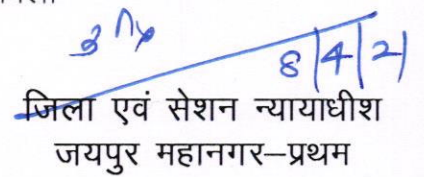 8/4/21
जिला एवं सेशन न्यायाधीश
जयपुर महानगर–प्रथम